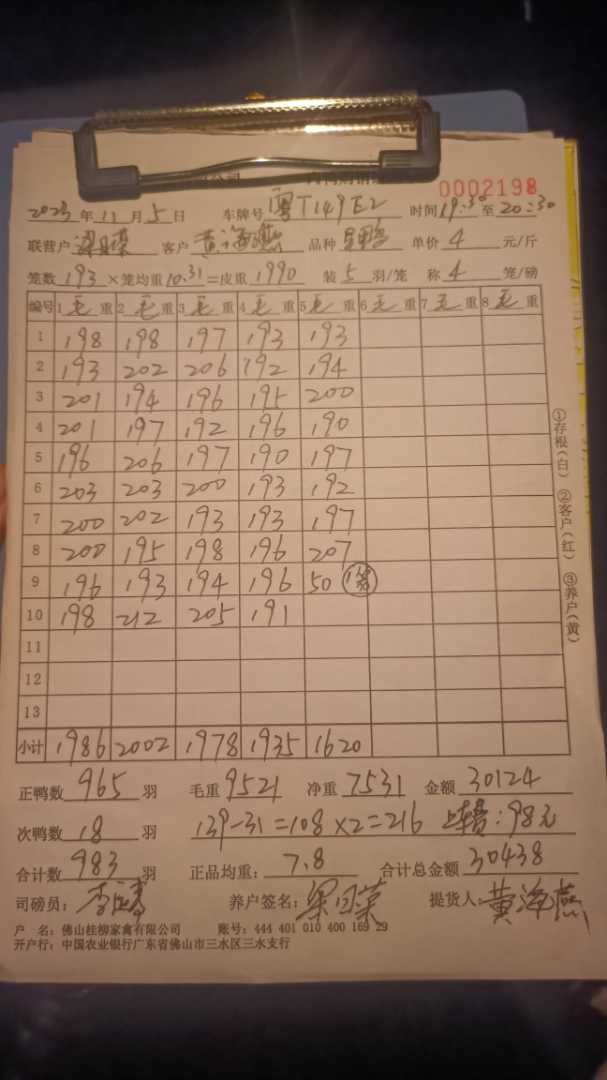 0002198
2023年11月5日 车牌号 粤T149E2 时间 19:30至20:30
联营户 客户 黄海燕 品种 单价 4 元/斤
笼数 193 ×笼均重 10.31 =皮重 1990 装 5 羽/笼 称 4 笼/磅
编号 1 毛 重 2 毛 重 3 毛 重 4 毛 重 5 毛 重 6 毛 重 7 毛 重 8 毛 重
1 198 198 197 193 193
2 193 202 206 192 194
3 201 194 196 195 200
4 201 197 192 196 190
5 196 206 197 190 197
6 203 203 200 193 192
7 200 202 193 193 197
8 200 195 198 196 207
9 196 193 194 196 50
10 198 212 205 191
11
12
13
小计 1986 2002 1978 1935 1620
正鸭数 965 羽 毛重 9521 净重 7531 金额 30124
次鸭数 18 羽 139-31=108×2=216 上车费:98元
合计数 983 羽 正品均重: 7.8 合计总金额 30438
司磅员: 养户签名: 梁日荣 提货人: 黄海燕
户 名: 佛山桂柳家禽有限公司 账号: 444 401 010 400 169 29
开户行: 中国农业银行广东省佛山市三水区三水支行
①存根(白) ②客户(红) ③养户(黄)